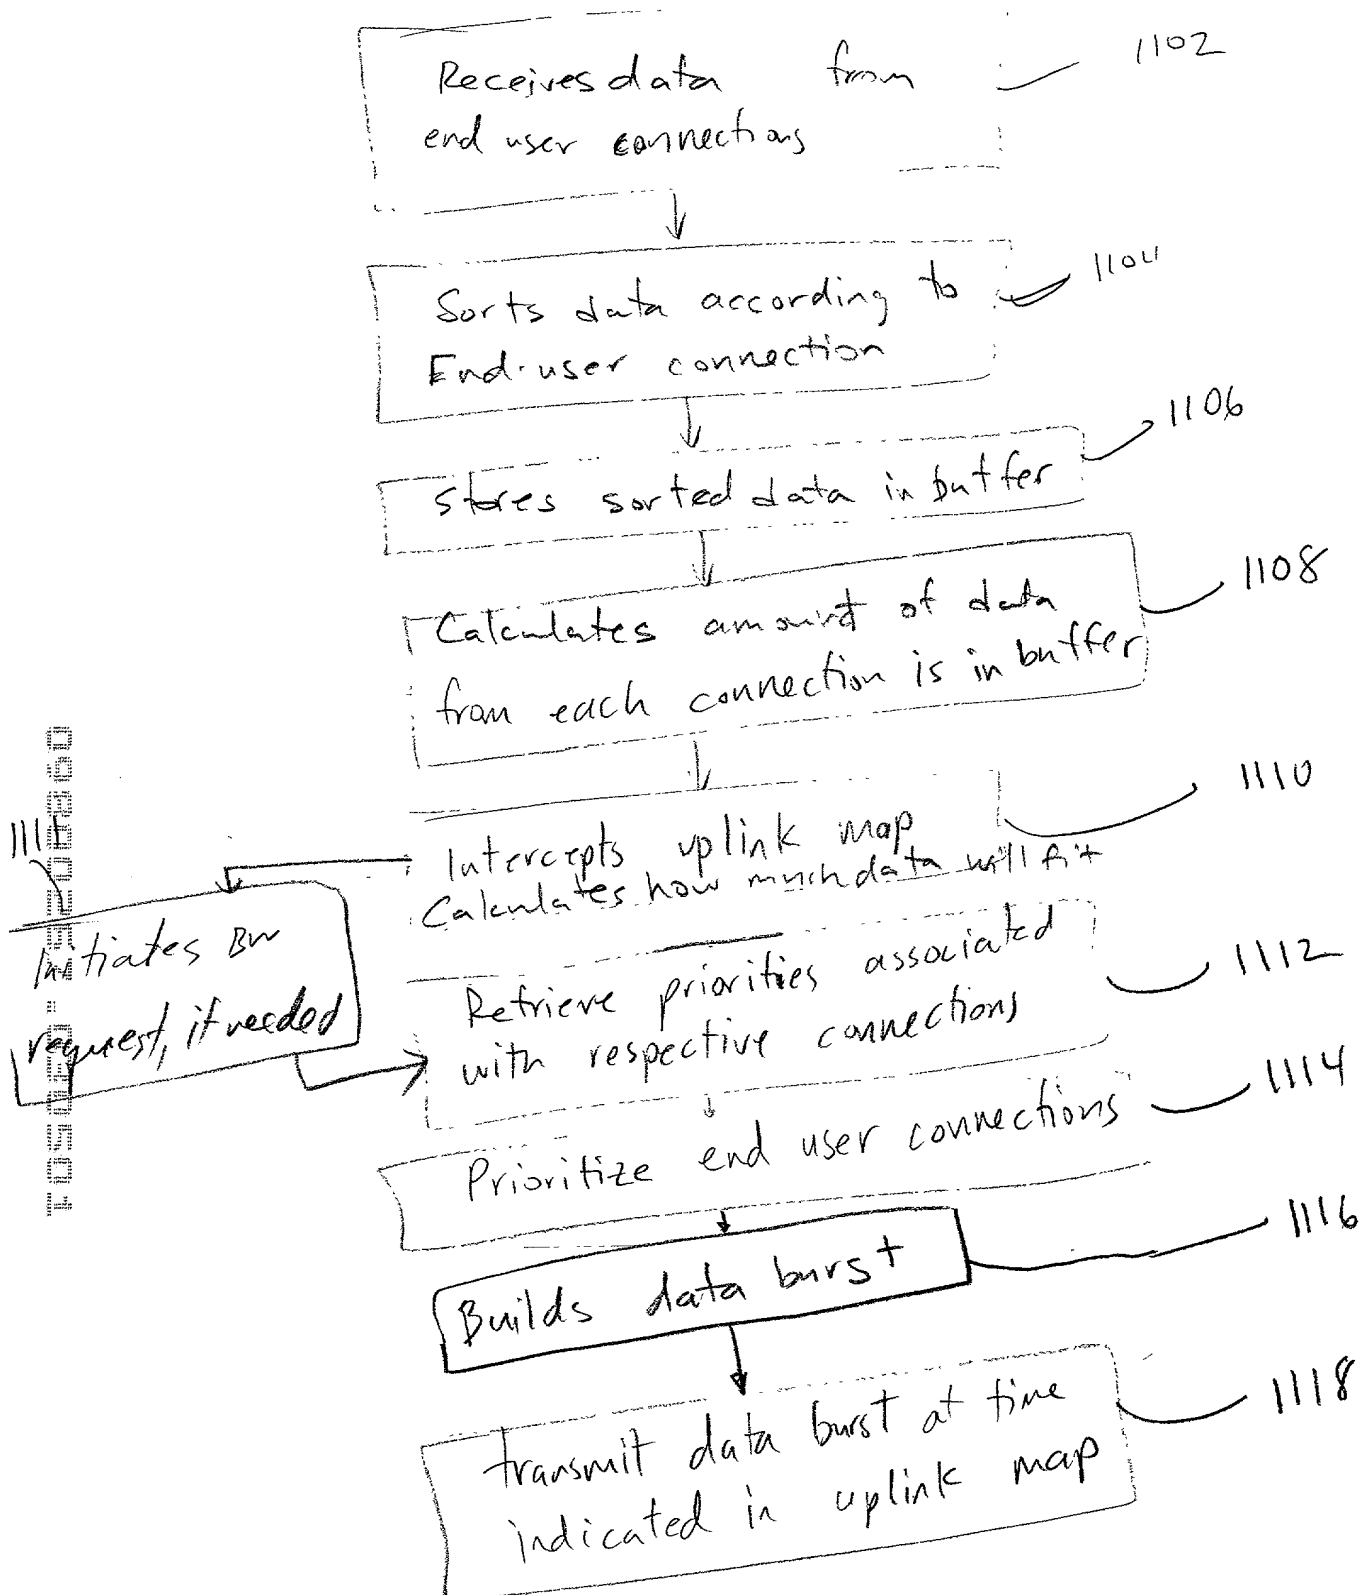 Receives data from
end user connections
1102
Sorts data according to
End-user connection
1104
Stores sorted data in buffer
1106
Calculates amount of data
from each connection is in buffer
1108
Intercepts uplink map
Calculates how much data will fit
1110
Initiates BW
request, if needed
Retrieve priorities associated
with respective connections
1112
Prioritize end user connections
1114
Builds data burst
1116
transmit data burst at time
indicated in uplink map
1118